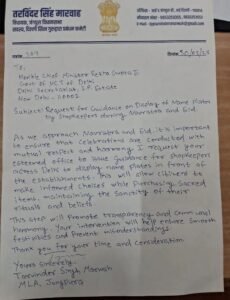 तरविंदर सिंह मारवाह
विधायक, जंगपुरा विधानसभा
सदस्य, दिल्ली सिख गुरुद्वारा प्रबंधक कमेटी
To,
Honble Chief Minister Rekha Gupta Ji
Govt of NCT of Delhi
Delhi Secretariat, I.P. Estate
New Delhi - 110002
Subject: Request for Guidance on Display of Name Plates
by Shopkeepers during Navratra and Eid.
As we approach Navratra and Eid, it's important
to ensure that celebrations are conducted with
mutual respect and harmony. I request your
esteemed office to issue guidance for shopkeepers
across Delhi to display name plates in front of
the establishments. This will allow citizens to
make informed choices while purchasing sacred
items, maintaining the sanctity of their
rituals and beliefs.
This step will promote transparency and communal
harmony. Your intervention will help ensure smooth
festivities and prevent misunderstandings.
Thank you for your time and consideration.
Yours sincerely,
Tarvinder Singh Marwah
MLA, Jungpura